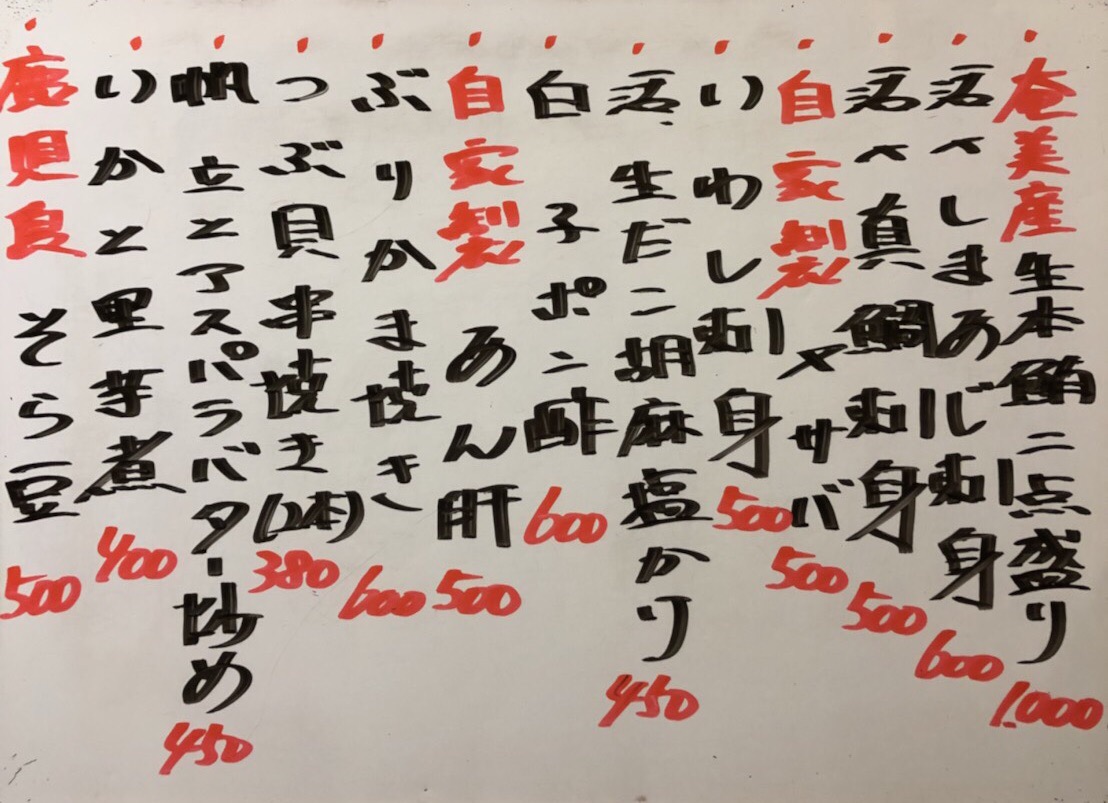 奄美産生本鮪二点盛り 1.000
活〆しまあじ刺身 600
活〆真鯛刺身 500
自家製〆サバ 500
いわし刺身 500
活生だこ胡麻塩かり 450
白子ポン酢 600
自家製 あん肝 500
ぶりかま焼き 600
つぶ貝串焼き(2本) 380
帆立とアスパラバター炒め 450
いかと里芋煮 400
鹿児島 そら豆 500